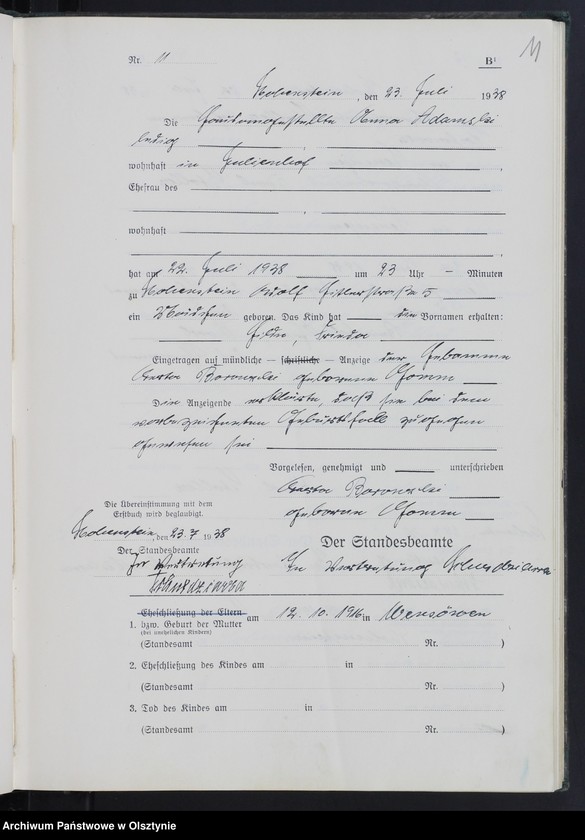 11
Nr. 11 B¹
Hohenstein, den 23. Juli 1938
Die Hausangestellte Anna Adamski
ledig
wohnhaft in Julienhof
Ehefrau des
wohnhaft
hat am 22. Juli 1938 um 23 Uhr – Minuten
zu Hohenstein Adolf Hitlerstraße 5
ein Mädchen geboren. Das Kind hat die Vornamen erhalten:
Hilda, Frieda
Eingetragen auf mündliche — schriftliche — Anzeige der Hebamme
geborene
Die Anzeigende erklärte, daß sie bei dem
vorbezeichneten Geburtsfall zugegen
gewesen sei
Vorgelesen, genehmigt und unterschrieben
geborene
Die Übereinstimmung mit dem
Erstbuch wird beglaubigt.
Hohenstein, den 23. 7. 1938
Der Standesbeamte
In Vertretung
Der Standesbeamte
In Vertretung
Eheschließung der Eltern
1. bzw. Geburt der Mutter am 12. 10. 1916 in Wensöwen
(bei unehelichen Kindern)
(Standesamt Nr. )
2. Eheschließung des Kindes am in
(Standesamt Nr. )
3. Tod des Kindes am in
(Standesamt Nr. )
Archiwum Państwowe w Olsztynie